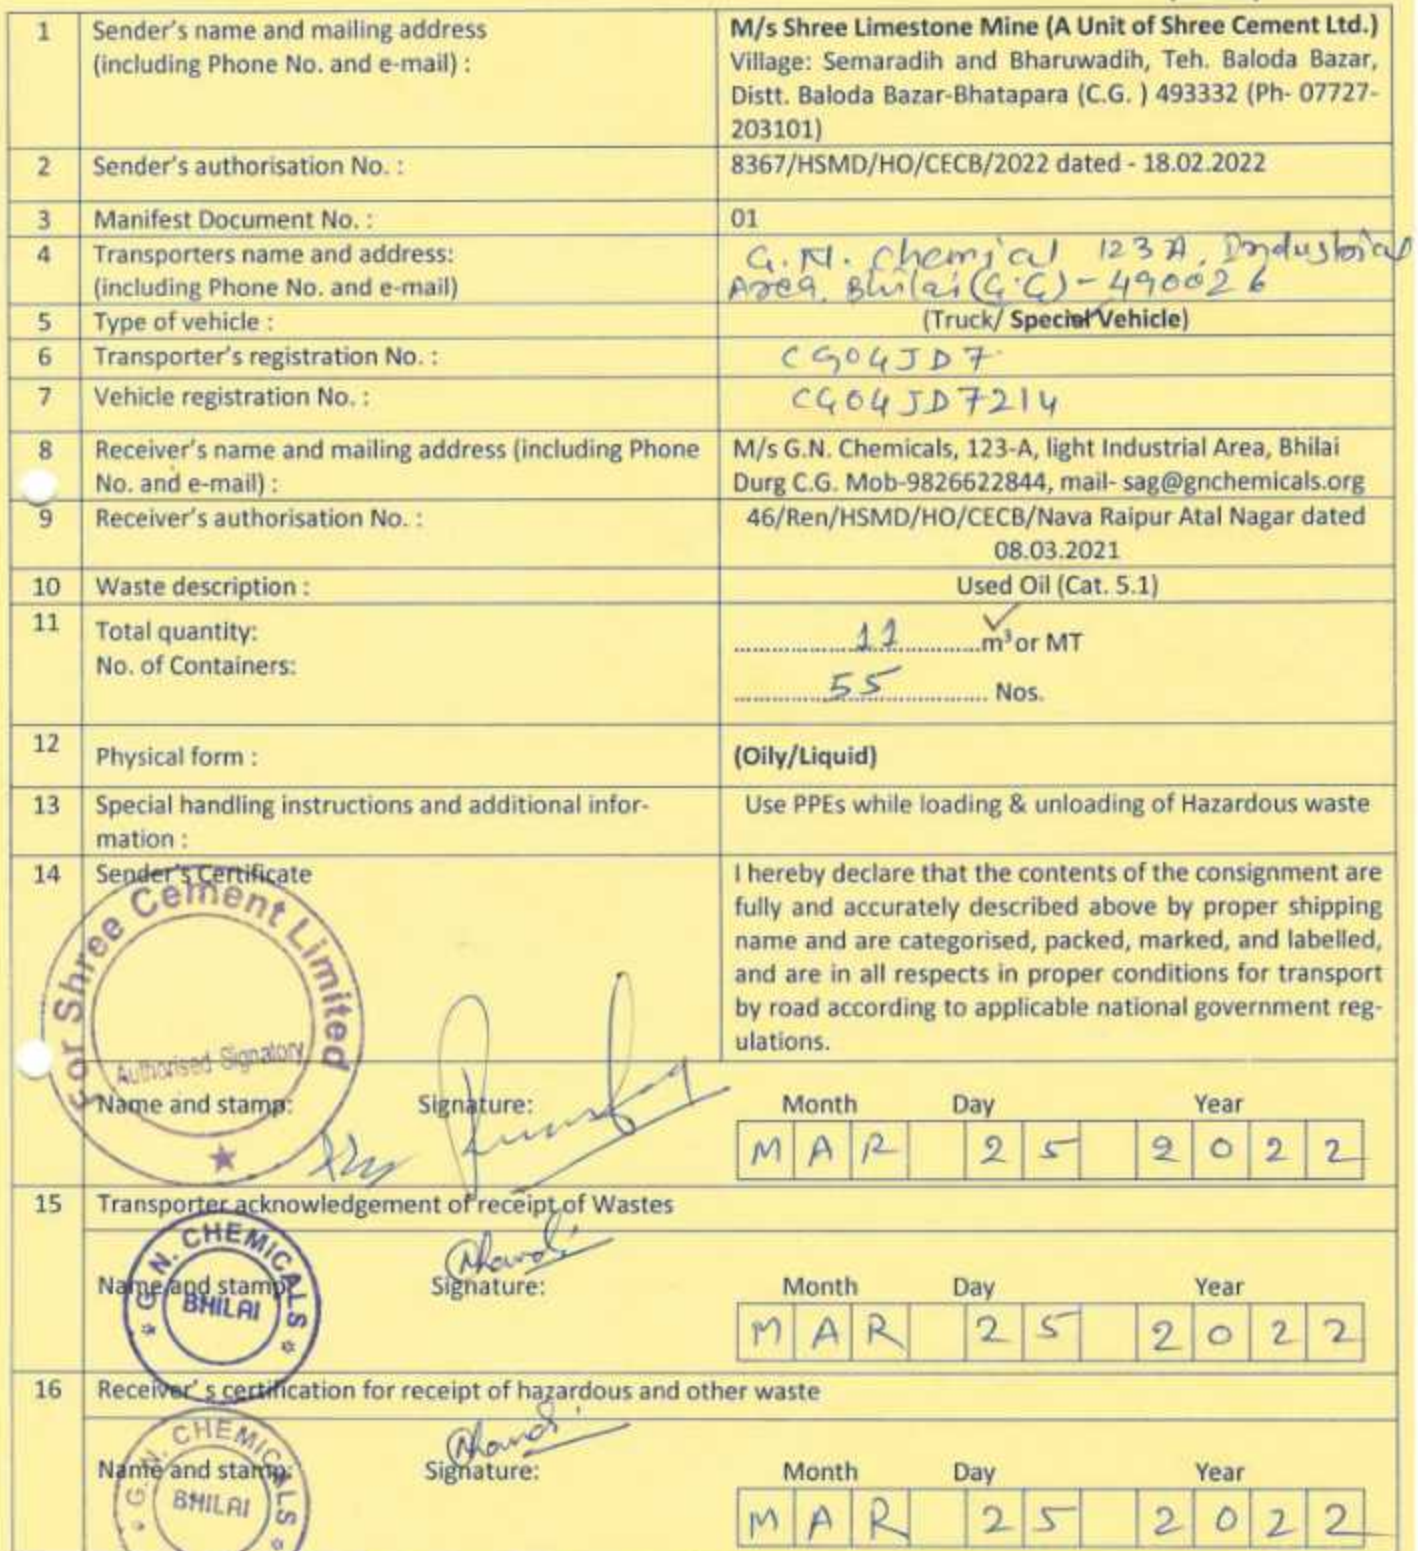 1 Sender's name and mailing address
(including Phone No. and e-mail) :
M/s Shree Limestone Mine (A Unit of Shree Cement Ltd.)
Village: Semaradih and Bharuwadih, Teh. Baloda Bazar,
Distt. Baloda Bazar-Bhatapara (C.G. ) 493332 (Ph- 07727-
203101)
2 Sender's authorisation No. : 8367/HSMD/HO/CECB/2022 dated - 18.02.2022
3 Manifest Document No. : 01
4 Transporters name and address:
(including Phone No. and e-mail)
G.N. Chemical 123A, Industrial
Area. Bhilai (C.G) - 490026
5 Type of vehicle : (Truck/ Special Vehicle)
6 Transporter's registration No. : CG04JD7
7 Vehicle registration No. : CG04JD7214
8 Receiver's name and mailing address (including Phone
No. and e-mail) :
M/s G.N. Chemicals, 123-A, light Industrial Area, Bhilai
Durg C.G. Mob-9826622844, mail- sag@gnchemicals.org
9 Receiver's authorisation No. : 46/Ren/HSMD/HO/CECB/Nava Raipur Atal Nagar dated
08.03.2021
10 Waste description : Used Oil (Cat. 5.1)
11 Total quantity: 11 m³ or MT
No. of Containers: 55 Nos.
12 Physical form : (Oily/Liquid)
13 Special handling instructions and additional infor-
mation :
Use PPEs while loading & unloading of Hazardous waste
14 Sender's Certificate
I hereby declare that the contents of the consignment are
fully and accurately described above by proper shipping
name and are categorised, packed, marked, and labelled,
and are in all respects in proper conditions for transport
by road according to applicable national government reg-
ulations.
For Shree Cement Limited
Authorised Signatory
Name and stamp: Signature: Month Day Year
MAR 25 2022
15 Transporter acknowledgement of receipt of Wastes
G.N. CHEMICALS
BHILAI
Name and stamp: Signature: Month Day Year
MAR 25 2022
16 Receiver' s certification for receipt of hazardous and other waste
G.N. CHEMICALS
BHILAI
Name and stamp: Signature: Month Day Year
MAR 25 2022